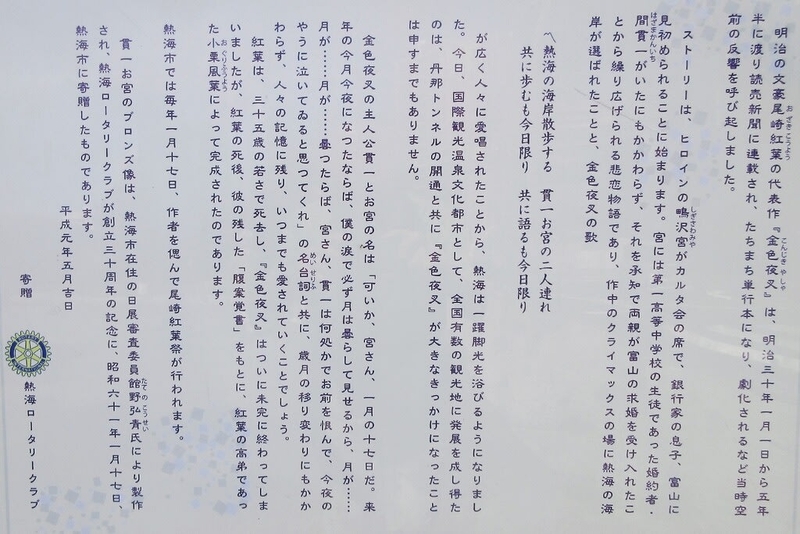 明治の文豪尾崎紅葉の代表作『金色夜叉』は、明治三十年一月一日から五年
半に渡り読売新聞に連載され、たちまち単行本になり、劇化されるなど当時空
前の反響を呼び起しました。
ストーリーは、ヒロインの鴫沢宮がカルタ会の席で、銀行家の息子、富山に
見初められることに始まります。宮には第一高等中学校の生徒であった婚約者・
間貫一がいたにもかかわらず、それを承知で両親が富山の求婚を受け入れたこ
とから繰り広げられる悲恋物語であり、作中のクライマックスの場に熱海の海
岸が選ばれたことと、金色夜叉の歌
〽熱海の海岸散歩する 貫一お宮の二人連れ
共に歩むも今日限り 共に語るも今日限り
が広く人々に愛唱されたことから、熱海は一躍脚光を浴びるようになりまし
た。今日、国際観光温泉文化都市として、全国有数の観光地に発展を成し得た
のは、丹那トンネルの開通と共に『金色夜叉』が大きなきっかけになったこと
は申すまでもありません。
金色夜叉の主人公貫一とお宮の名は「可いか、宮さん、一月の十七日だ。来
年の今月今夜になつたならば、僕の涙で必ず月は曇らして見せるから、月が……
月が……月が……曇つたらば、宮さん、貫一は何処かでお前を恨んで、今夜の
やうに泣いてゐると思つてくれ」の名台詞と共に、歳月の移り変わりにもかか
わらず、人々の記憶に残り、いつまでも愛されていくことでしょう。
紅葉は、三十五歳の若さで死去し、『金色夜叉』はついに未完に終わってしま
いましたが、紅葉の死後、彼の残した「腹案覚書」をもとに、紅葉の高弟であっ
た小栗風葉によって完成されたのであります。
熱海市では毎年一月十七日、作者を偲んで尾崎紅葉祭が行われます。
貫一お宮のブロンズ像は、熱海市在住の日展審査委員館野弘青氏により製作
され、熱海ロータリークラブが創立三十周年の記念に、昭和六十一年一月十七日、
熱海市に寄贈したものであります。
平成元年五月吉日
寄贈
熱海ロータリークラブ